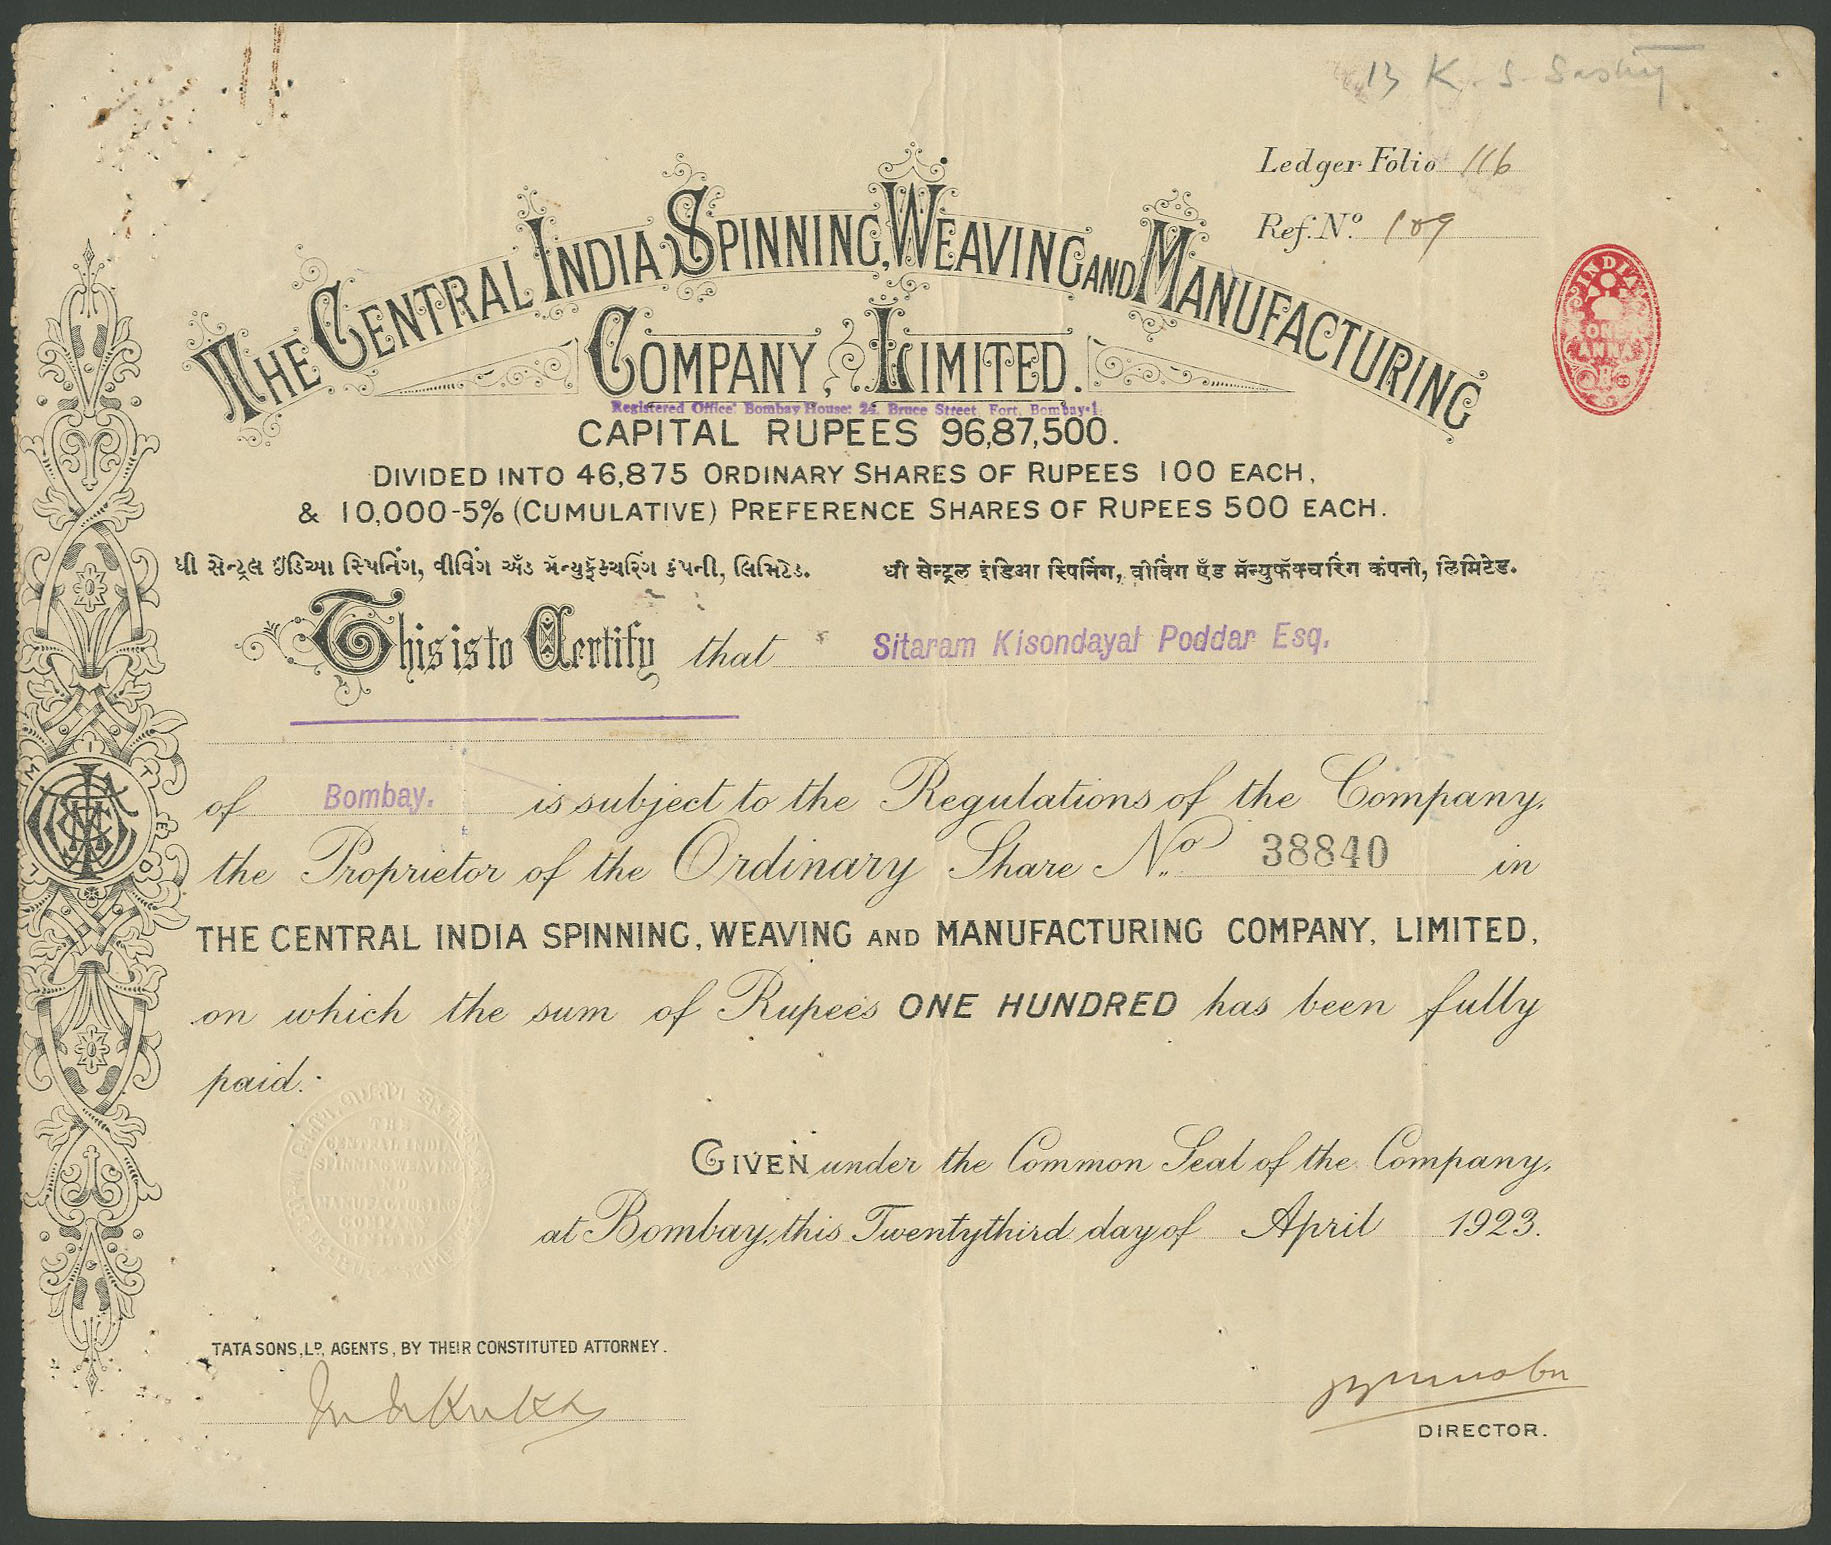 13 K. S. Sastry
Ledger Folio 116
Ref. Nº 109
THE CENTRAL INDIA SPINNING, WEAVING AND MANUFACTURING
COMPANY, LIMITED.
INDIA
ONE
ANNA
Registered Office: Bombay House: 24, Bruce Street, Fort, Bombay-1.
CAPITAL RUPEES 96,87,500.
DIVIDED INTO 46,875 ORDINARY SHARES OF RUPEES 100 EACH,
& 10,000-5% (CUMULATIVE) PREFERENCE SHARES OF RUPEES 500 EACH.
ધી સેન્ટ્રલ ઇંડિઆ સ્પિનિંગ, વીવિંગ અઁડ મૅન્યુફૅક્ચરિંગ કંપની, લિમિટેડ. धी सेन्ट्रल इंडिआ स्पिनिंग, वीविंग ऍंड मॅन्युफॅक्चरिंग कंपनी, लिमिटेड.
This is to Certify that Sitaram Kisondayal Poddar Esq.
of Bombay. is subject to the Regulations of the Company,
the Proprietor of the Ordinary Share Nº 38840 in
THE CENTRAL INDIA SPINNING, WEAVING AND MANUFACTURING COMPANY, LIMITED,
on which the sum of Rupees ONE HUNDRED has been fully
paid.
THE
CENTRAL INDIA
SPINNING WEAVING
AND
MANUFACTURING
COMPANY
LIMITED
GIVEN under the Common Seal of the Company,
at Bombay, this Twentythird day of April 1923.
TATA SONS, LD, AGENTS, BY THEIR CONSTITUTED ATTORNEY.
DIRECTOR.
LIMITED